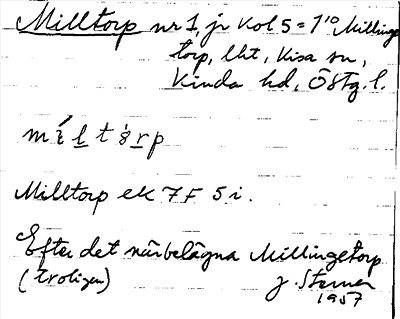 Milltorp nr 1, jr Kol 5 = 1⁰ Millinge
torp, lht, Kisa sn,
Kinda hd, Östg. l.
míltórp
Milltorp ek 7 F 5 i.
Efter det närbelägna Millingetorp
(troligen) J. Sterner
1957